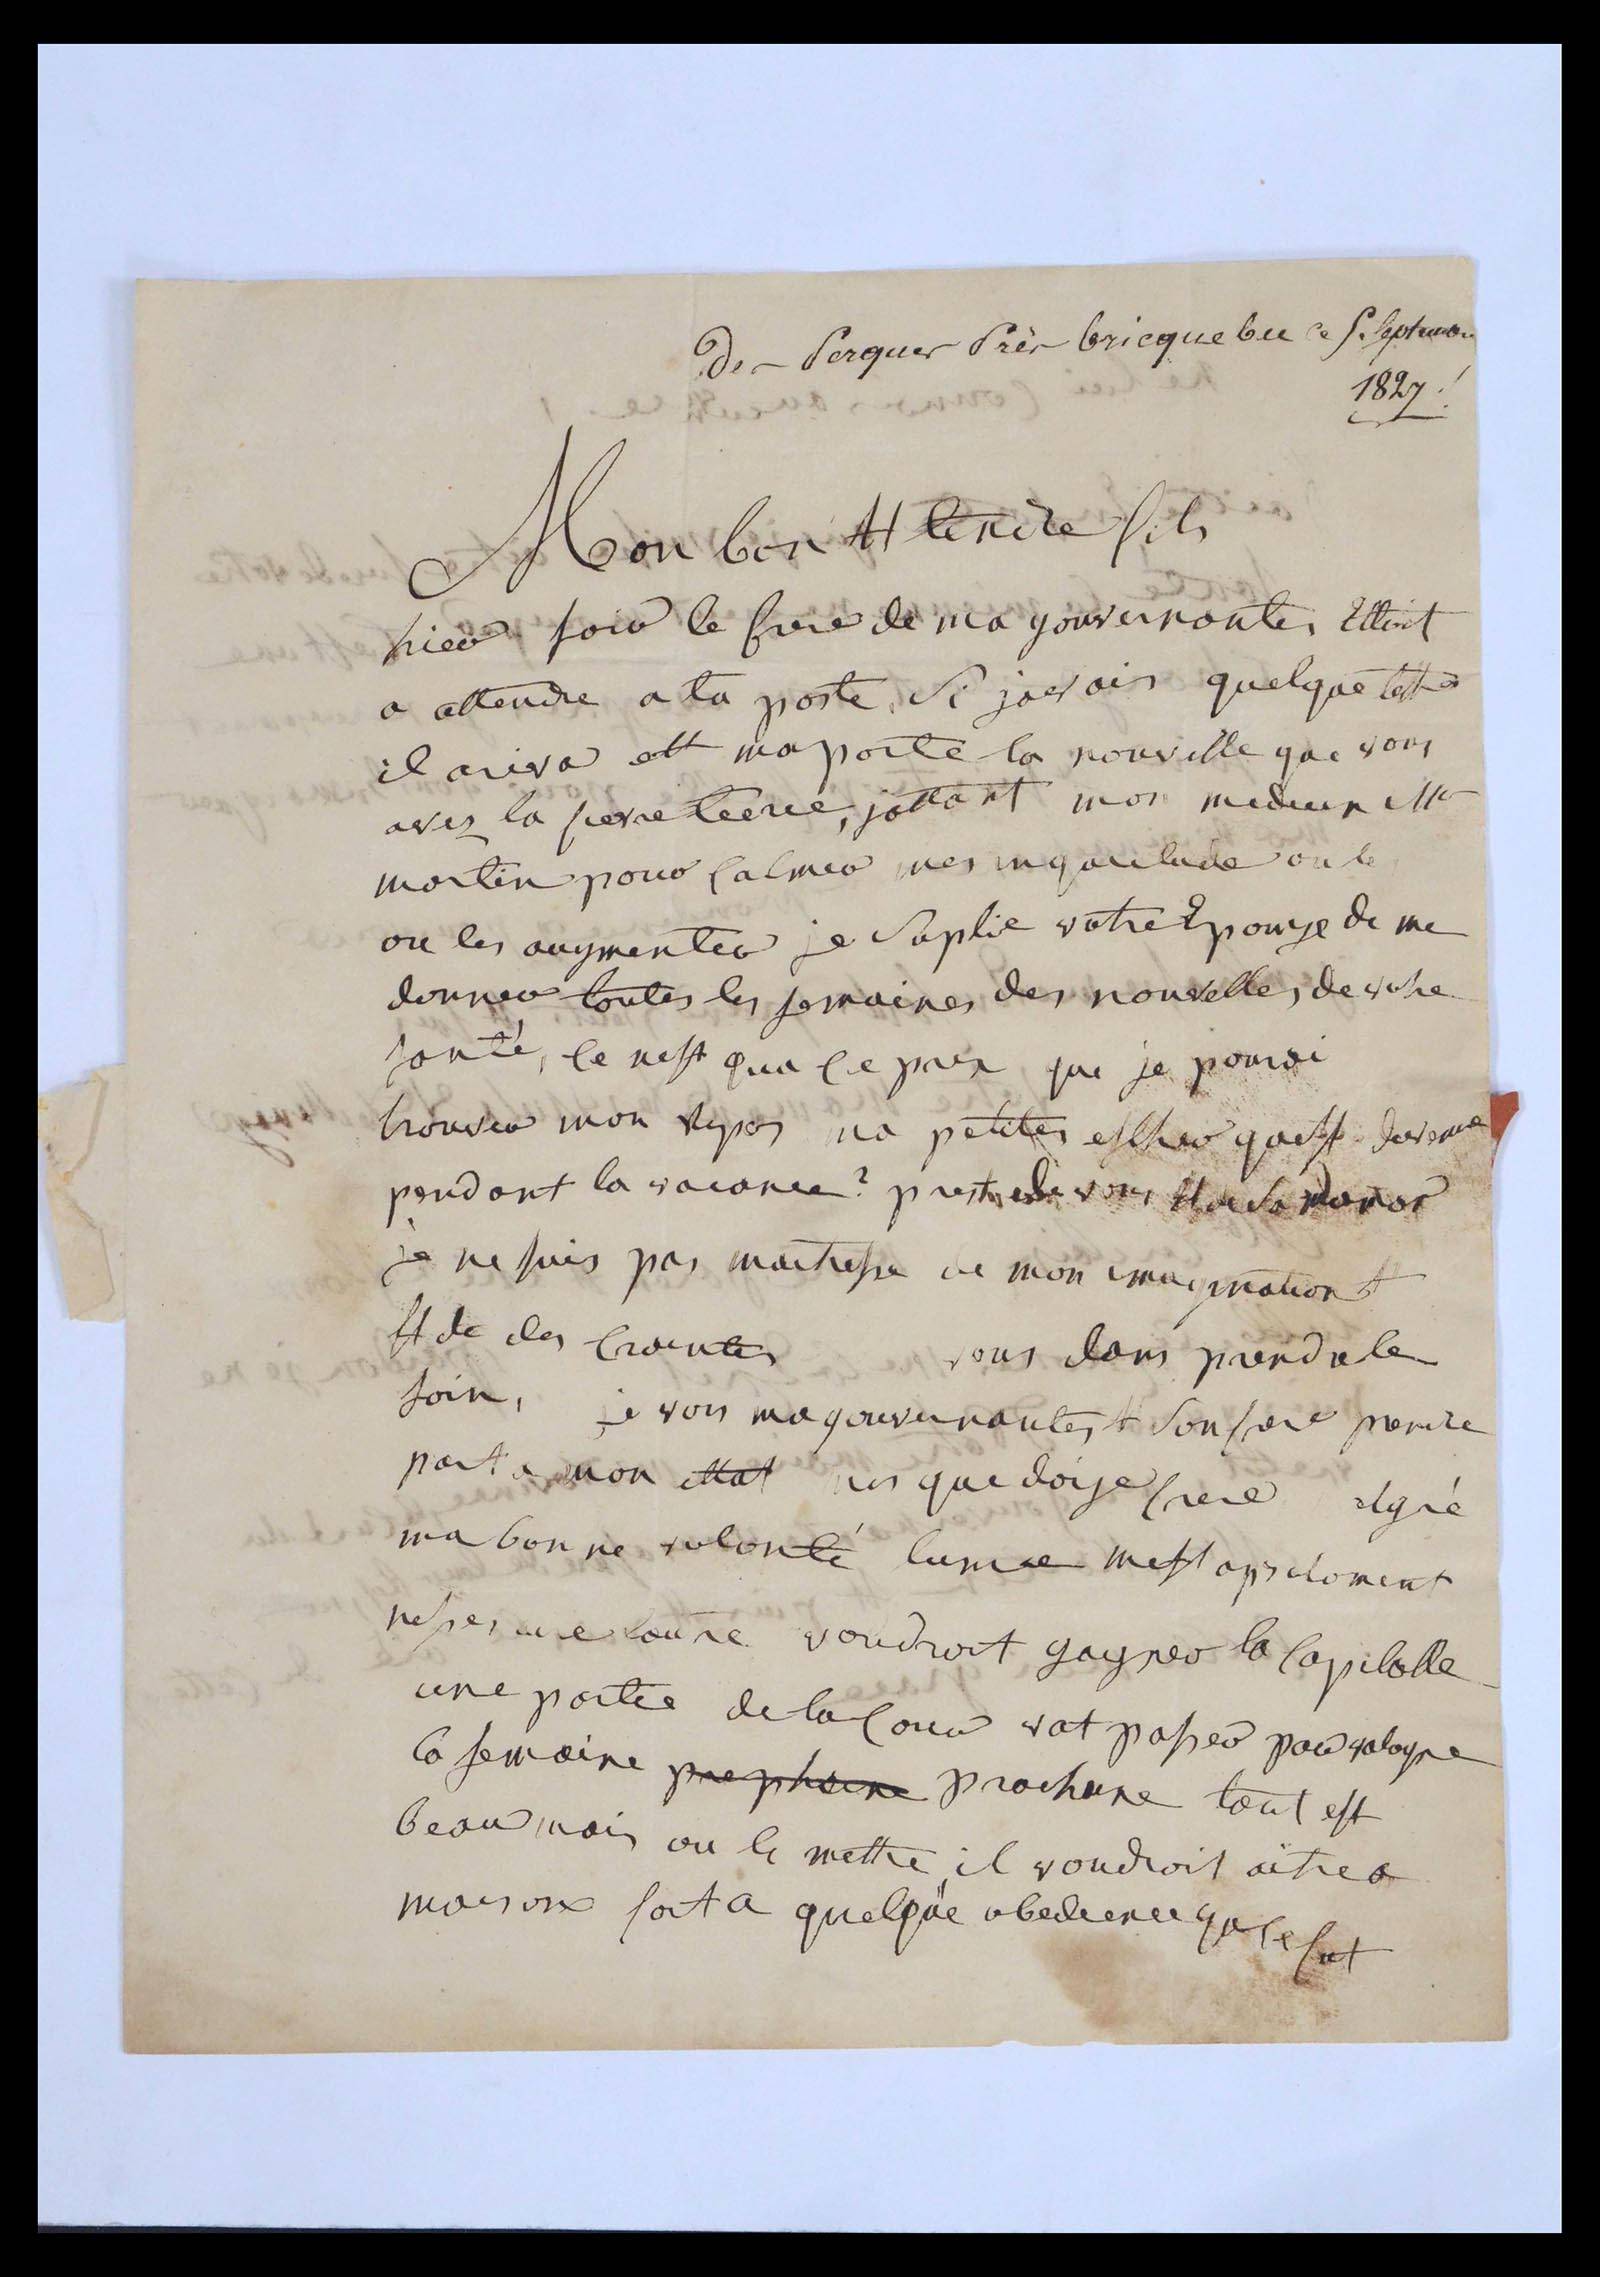 De Perques Près bricquebec ce 5 Septembre
1827
Mon bon Et tendre fils
hier soir le frere de ma gouvernantes Ettoit
a attendre a la poste Si javois quelque lettre
il ariva ett maporte la nouvelle que vous
avez la fievre tierce, jattant mon medecin Mr
martin pour calmer mes inquietude ou le
ou les augmenter je Suplie votre Epouse de me
donner toutes les semaines des nouvelles de votre
santé, ce nest qua ce prix que je pourai
trouver mon repos ma petites esther quest devenue
pendant la vacance? prest de vous Et de Sa maman
je ne suis pas maitresse de mon imagination
Et de des craintes vous dans prendre le
soin, je vois ma gouvernantes Et Son frere prendre
part a mon ettat mes que doije crere
ma bonne volonté lunne mest
une lautre voudroit gagner la Capitalle
une partie de la Cour vat passer par valogne
la semaine prochene tout est
beau mais ou le mettre, il voudroit aître a
maison fort a quelque obedience que ce fut